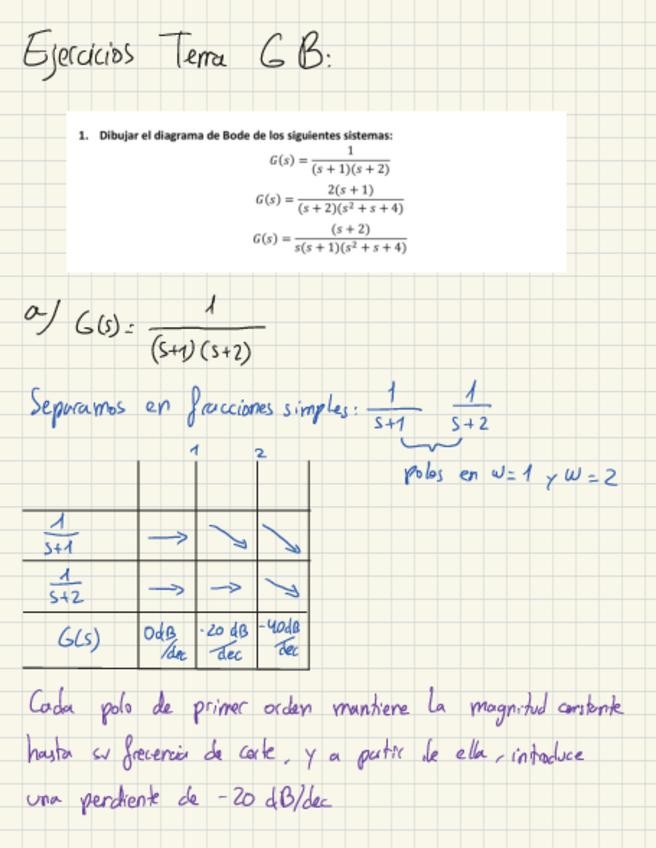 Ejercicios Tema 6 B:
1. Dibujar el diagrama de Bode de los siguientes sistemas:
G(s) = 1 / ((s + 1)(s + 2))
G(s) = 2(s + 1) / ((s + 2)(s² + s + 4))
G(s) = (s + 2) / (s(s + 1)(s² + s + 4))
a) G(s) = 1 / ((s+1)(s+2))
Separamos en fracciones simples: 1/(s+1) 1/(s+2)
polos en w=1 y w=2
1 2
1/(s+1) → ↘ ↘
1/(s+2) → → ↘
G(s) 0dB/dec -20 dB/dec -40dB/dec
Cada polo de primer orden mantiene la magnitud constante
hasta su frecencia de corte, y a partir de ella, introduce
una pendiente de -20 dB/dec